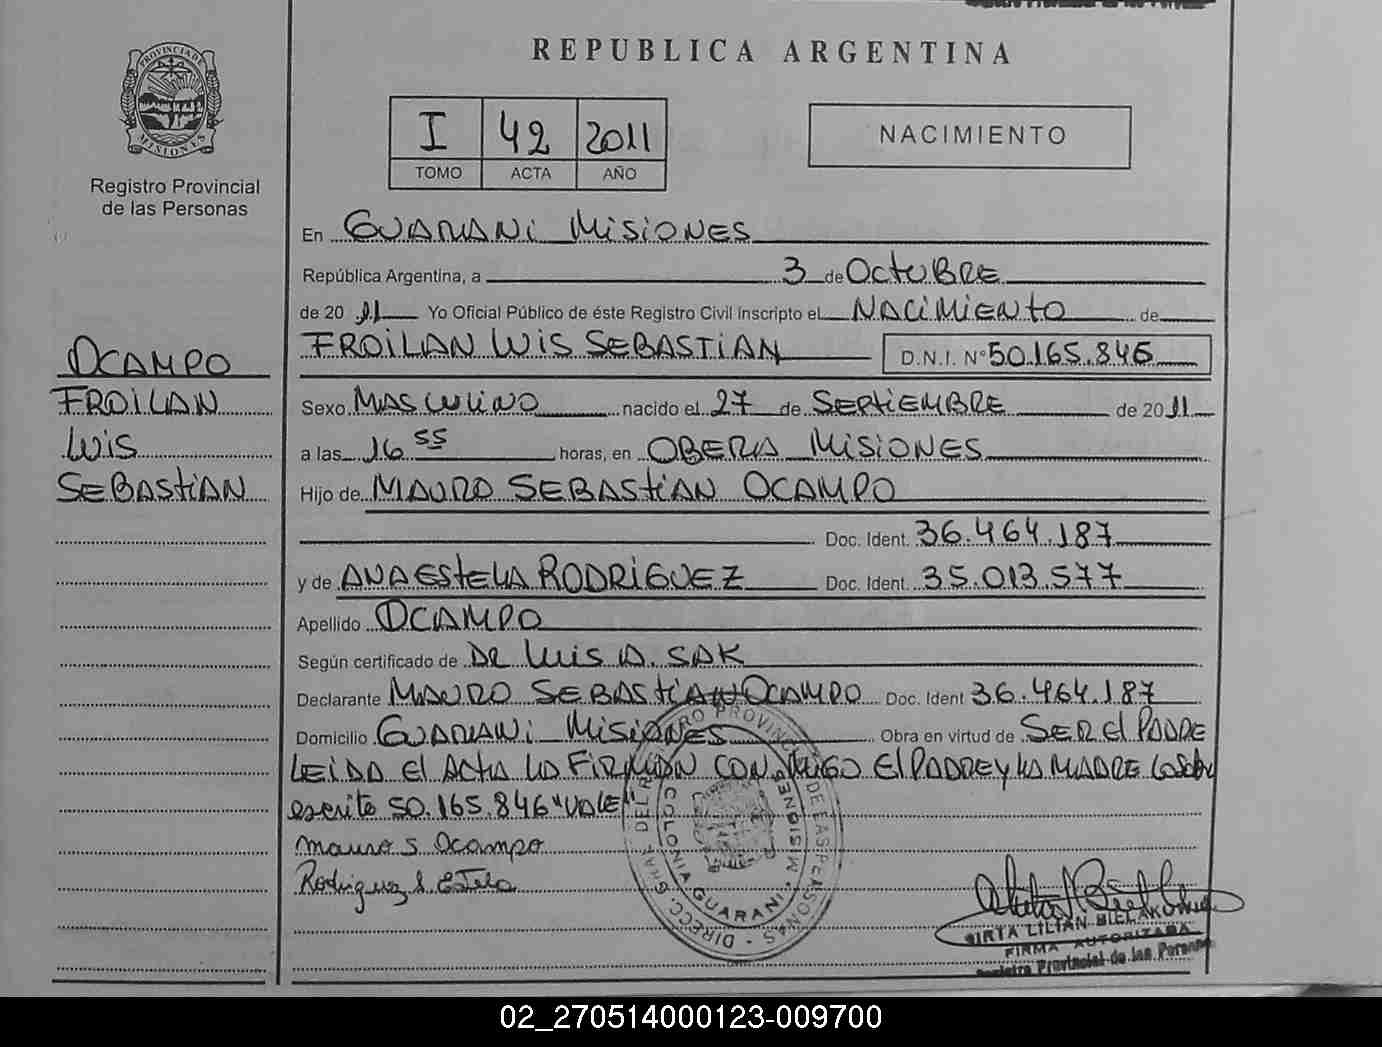 REPUBLICA ARGENTINA
PROVINCIA DE MISIONES
Registro Provincial
de las Personas
I 42 2011
TOMO ACTA AÑO
NACIMIENTO
En GUARANI MISIONES
República Argentina, a 3 de OCTUBRE
de 2011 Yo Oficial Público de éste Registro Civil Inscripto el NACIMIENTO de
FROILAN LUIS SEBASTIAN D.N.I. Nº 50.165.846
Sexo MASCULINO nacido el 27 de SEPTIEMBRE de 2011
a las 16 55 horas, en OBERA MISIONES
Hijo de MAURO SEBASTIAN OCAMPO
Doc. Ident. 36.464.187
y de ANA ESTELA RODRIGUEZ Doc. Ident. 35.013.577
Apellido OCAMPO
Según certificado de DR LUIS A. SAK
Declarante MAURO SEBASTIAN OCAMPO Doc. Ident 36.464.187
Domicilio GUARANI MISIONES Obra en virtud de SER El PADRE
LEIDA El ACTA LA FIRMAN CONMIGO El PADRE y LA MADRE Lo Sobre
escrito 50.165.846 "VALE"
Mauro S Ocampo
Rodriguez A Estela
OCAMPO
FROILAN
LUIS
SEBASTIAN
DIRECC. GRAL. DEL REGISTRO PROVINCIAL DE LAS PERSONAS
COLONIA GUARANI - MISIONES
MIRTA LILIAN
FIRMA AUTORIZADA
Registro Provincial de las Personas
02_270514000123-009700